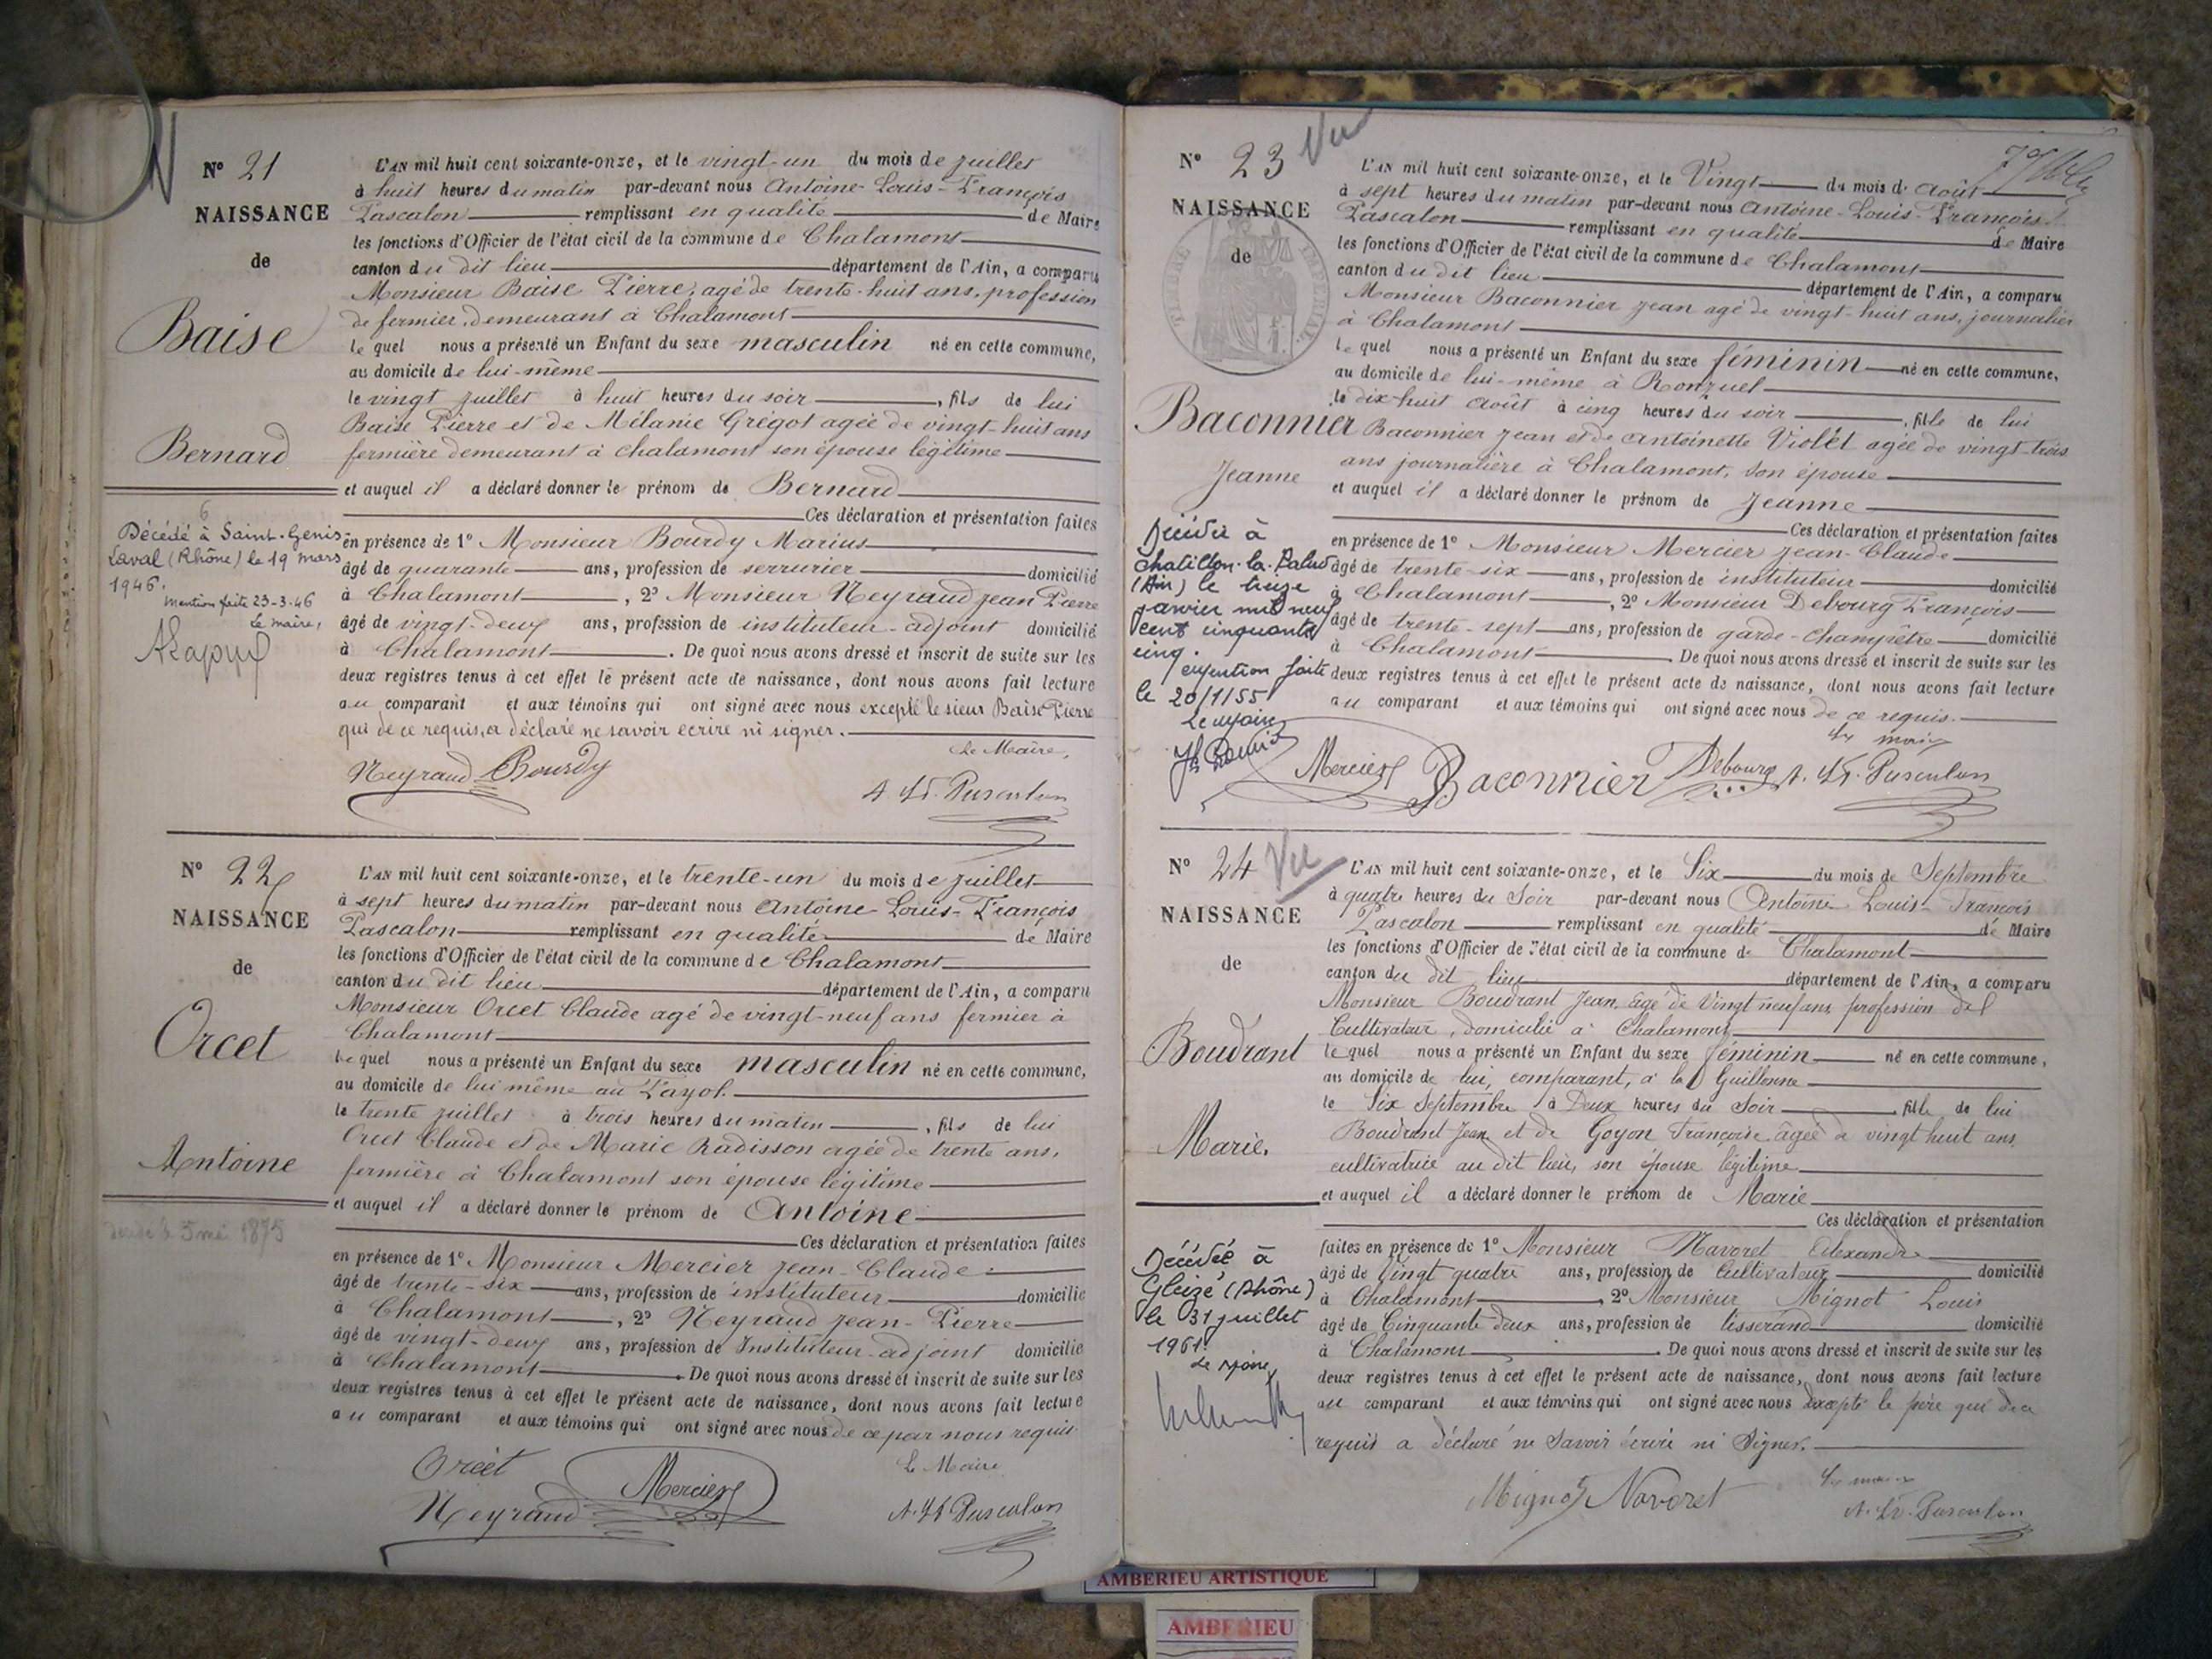 Nº 21
NAISSANCE
de
Baise
Bernard
6
Décédé à Saint-Genis
Laval (Rhône) le 19 mars
1946.
Mention faite 23-3-46
Le Maire,
L'AN mil huit cent soixante-onze, et le vingt-un du mois de juillet
à huit heures du matin par-devant nous Antoine-Louis-François
Pascalon remplissant en qualité de Maire
les fonctions d'Officier de l'état civil de la commune de Chalamont
canton du dit lieu département de l'Ain, a comparu
Monsieur Baise Pierre, agé de trente-huit ans, profession
de fermier, demeurant à Chalamont
le quel nous a présenté un Enfant du sexe masculin né en cette commune,
au domicile de lui-même
le vingt juillet à huit heures du soir, fils de lui
Baise Pierre et de Mélanie Grégot agée de vingt-huit ans
fermière demeurant à chalamont son épouse légitime
et auquel il a déclaré donner le prénom de Bernard
Ces déclaration et présentation faites
en présence de 1º Monsieur Bourdy Marius
âgé de quarante ans, profession de serrurier domicilié
à Chalamont, 2º Monsieur Neyraud jean Pierre
âgé de vingt-deux ans, profession de instituteur-adjoint domicilié
à Chalamont. De quoi nous avons dressé et inscrit de suite sur les
deux registres tenus à cet effet le présent acte de naissance, dont nous avons fait lecture
au comparant et aux témoins qui ont signé avec nous excepté le sieur Baise Pierre
qui de ce requis, a déclaré ne savoir écrire ni signer.
Le Maire,
Neyraud Bourdy
A. Ls. Pascalon
Nº 22
NAISSANCE
de
Orcet
Antoine
décédé le 5 mai 1875
L'AN mil huit cent soixante-onze, et le trente-un du mois de juillet
à sept heures du matin par-devant nous Antoine Louis-François
Pascalon remplissant en qualité de Maire
les fonctions d'Officier de l'état civil de la commune de Chalamont
canton du dit lieu département de l'Ain, a comparu
Monsieur Orcet Claude agé de vingt-neuf ans fermier à
Chalamont
le quel nous a présenté un Enfant du sexe masculin né en cette commune,
au domicile de lui même au Payol.
le trente juillet à trois heures du matin, fils de lui
Orcet Claude et de Marie Radisson agée de trente ans,
fermière à Chalamont son épouse légitime
et auquel il a déclaré donner le prénom de Antoine
Ces déclaration et présentation faites
en présence de 1º Monsieur Mercier jean-Claude
âgé de trente-six ans, profession de instituteur domicilié
à Chalamont, 2º Neyraud jean-Pierre
âgé de vingt-deux ans, profession de Instituteur-adjoint domicilié
à Chalamont. De quoi nous avons dressé et inscrit de suite sur les
deux registres tenus à cet effet le présent acte de naissance, dont nous avons fait lecture
au comparant et aux témoins qui ont signé avec nous de ce par nous requis
Orcet Mercier Le Maire
Neyraud A. Ls Pascalon
Nº 23 Vu
NAISSANCE
de
TIMBRE IMPERIAL
Baconnier
Jeanne
Décédée à
Chatillon-la-Palud
(Ain) le treize
janvier mil neuf
cent cinquante
cinq.
Mention faite
le 20/1/55
Le Maire
L'AN mil huit cent soixante-onze, et le Vingt du mois de Août
à sept heures du matin par-devant nous Antoine-Louis-François
Pascalon remplissant en qualité de Maire
les fonctions d'Officier de l'état civil de la commune de Chalamont
canton du dit lieu département de l'Ain, a comparu
Monsieur Baconnier jean agé de vingt-huit ans, journalier
à Chalamont
le quel nous a présenté un Enfant du sexe féminin né en cette commune,
au domicile de lui-même à Ronzuel
le dix-huit Août à cinq heures du soir, fille de lui
Baconnier jean et de Antoinette Violet agée de vingt-trois
ans journalière à Chalamont, son épouse
et auquel il a déclaré donner le prénom de Jeanne
Ces déclaration et présentation faites
en présence de 1º Monsieur Mercier jean-Claude
âgé de trente-six ans, profession de instituteur domicilié
à Chalamont, 2º Monsieur Debourg François
âgé de trente-sept ans, profession de garde-champêtre domicilié
à Chalamont. De quoi nous avons dressé et inscrit de suite sur les
deux registres tenus à cet effet le présent acte de naissance, dont nous avons fait lecture
au comparant et aux témoins qui ont signé avec nous de ce requis.
Le maire
Mercier Baconnier Debourg A. Ls. Pascalon
Nº 24 Vu
NAISSANCE
de
Boudrant
Marie.
Décédée à
Gleizé (Rhône)
le 31 juillet
1961.
Le Maire,
L'AN mil huit cent soixante-onze, et le Six du mois de Septembre
à quatre heures du Soir par-devant nous Antoine-Louis-François
Pascalon remplissant en qualité de Maire
les fonctions d'Officier de l'état civil de la commune de Chalamont
canton du dit lieu département de l'Ain, a comparu
Monsieur Boudrant Jean, âgé de Vingt neuf ans, profession de
Cultivateur, domicilié à Chalamont
le quel nous a présenté un Enfant du sexe féminin né en cette commune,
au domicile de lui, comparant, à la Guillonne
le Six Septembre à Deux heures du Soir, fille de lui
Boudrant Jean et de Goyon Françoise âgée de vingt huit ans,
cultivatrice au dit lieu, son épouse légitime
et auquel il a déclaré donner le prénom de Marie
Ces déclaration et présentation
faites en présence de 1º Monsieur Navoret Alexandre
âgé de Vingt quatre ans, profession de Cultivateur domicilié
à Chalamont, 2º Monsieur Mignot Louis
âgé de Cinquante deux ans, profession de tisserand domicilié
à Chalamont. De quoi nous avons dressé et inscrit de suite sur les
deux registres tenus à cet effet le présent acte de naissance, dont nous avons fait lecture
au comparant et aux témoins qui ont signé avec nous excepté le père qui de ce
requis a déclaré ne savoir écrire ni signer.
Le maire
Mignot Navoret A. Ls. Pascalon
AMBERIEU ARTISTIQUE
AMBERIEU